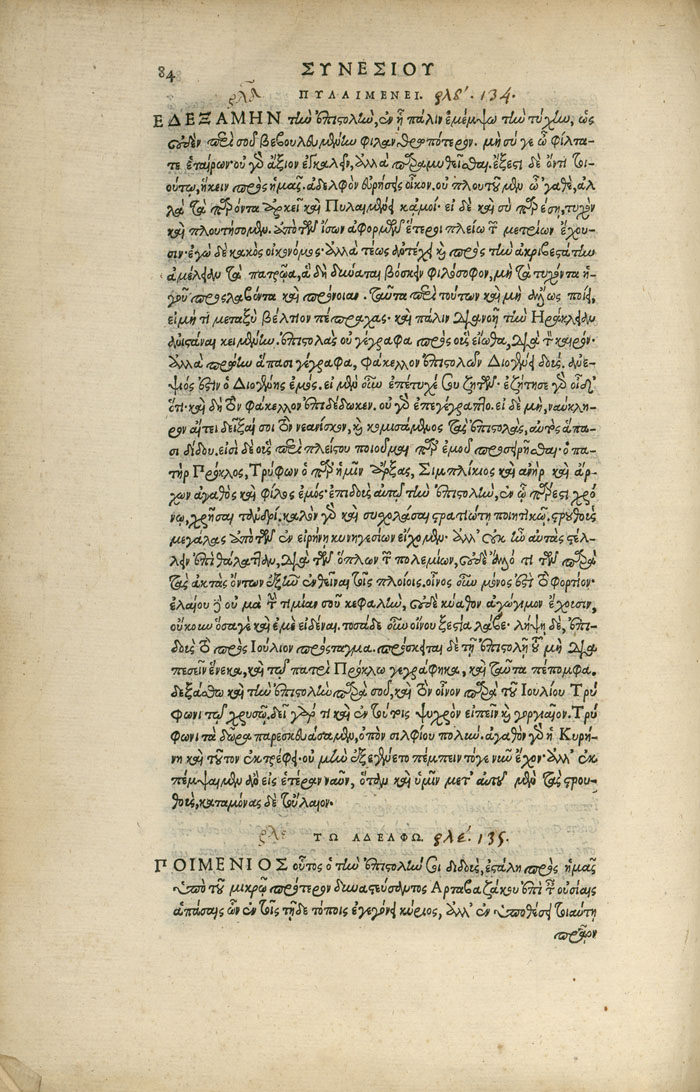 84 ΣΥΝΕΣΙΟΥ
ΠΥΛΑΙΜΕΝΕΙ. ρλδʹ. 134.
ΕΔΕΞΑΜΗΝ τὴν ἐπιστολὴν, ἐν ᾗ πάλιν ἐμέμψω τὴν τύχην, ὡς
οὐδὲν περὶ σοῦ βεβουλευμένην φιλανθρωπότερον. μὴ σύ γε ὦ φίλτα-
τε ἑταίρων· οὐ γὸ ἄξιον ἐγκαλεῖν, ἀλλὰ παραμυθεῖσθαι. ἔξεστι δὲ ὄντι τοι-
ούτῳ, ἥκειν πρὸς ἡμᾶς. ἀδελφὸν εὑρήσεις οἶκον. οὐ πλουτοῦμεν ὦ 'γαθὲ, ἀλ
λὰ τὰ παρόντα ἀρκεῖ καὶ Πυλαιμένει κἀμοί· εἰ δὲ καὶ σὺ παρέσῃ, τυχὸν
καὶ πλουτήσομεν. ἀπὸ τῶν ἴσων ἀφορμῶν ἕτεροι πλείω τῶν μετρίων ἔχου-
σιν· ἐγὼ δὲ κακὸς οἰκονόμος· ἀλλὰ τέως ἀντέχει καὶ πρὸς τὴν ἀκριβεστάτην
ἀμέλειαν τὰ πατρῷα, ἃ δὴ δύναται βόσκειν φιλόσοφον, μὴ τὰ τυχόντα ἡ-
γοῦ προσλαβόντα καὶ πρόνοιαν. ταῦτα περὶ τούτων καὶ μὴ ἄλλως ποίει,
εἰ μή τι μεταξὺ βέλτιον πέπραχας· καὶ πάλιν διανοῇ τὴν Ἡράκλειαν
ἀνιστάναι κειμένην. ἐπιστολὰς οὐ γέγραφα πρὸς οὓς εἴωθα, διὰ τὸν καιρόν·
ἀλλὰ πρώην ἅπασι γέγραφα, φάκελλον ἐπιστολῶν Διογένει δούς. ἀνε-
ψιός ἐστιν ὁ Διογένης ἐμός. εἰ μὲν οὖν ἐπέτυχέ σου ζητῶν· ἐζήτησε γὰρ οἶδ'
ὅτι· καὶ δὴ τὸν φάκελλον ἐπιδέδωκεν. σοὶ γὰρ ἐπεγέγραπτο. εἰ δὲ μὴ, ναύκλη-
ρον αἴτει δεῖξαί σοι τὸν νεανίσκον, καὶ κομισάμενος τὰς ἐπιστολὰς, αὐτὸς ἅπα-
σι δίδου. εἰσὶ δὲ οὓς περὶ πλείστου ποιοῦμαι παρ' ἐμοῦ προσειρῆσθαι· ὁ πα-
τὴρ Πρόκλος, Τρύφων ὁ παρ' ἡμῖν ἄρξας, Σιμπλίκιος καὶ ἀνὴρ καὶ ἄρ-
χων ἀγαθὸς καὶ φίλος ἐμός· ἐπιδοὺς αὐτῷ τὴν ἐπιστολὴν, ἐν ᾧ πάρεστι χρό
νῳ, χρῆσαι τἀνδρί. καλὸν γὰρ καὶ συσχολάσαι στρατιώτῃ ποιητικῷ. στρουθοὺς
μεγάλας ἀπὸ τῶν ἐν εἰρήνῃ κυνηγεσίων εἴχομεν· ἀλλ' οὐκ ἦν αὐτὰς στέλ-
λειν ἐπὶ θάλατταν, διὰ τῶν ὅπλων τῶν πολεμίων, οὐδὲ ἀπό τι τῶν παρὰ
τὰς ἀκτὰς ὄντων ἐξῆν ἐνθεῖναι τοῖς πλοίοις. οἶνος οὖν μόνος ἐστὶ τὸ φορτίον·
ἐλαίου δὲ οὐ μὰ τὴν τιμίαν σου κεφαλὴν, οὐδὲ κύαθον ἀγώγιμον ἔχουσιν,
οὔκουν ὅσα γε καὶ ἐμὲ εἰδέναι. τοσάδε οὖν οἴνου ξεστία λαβέ· λήψῃ δὲ, ἐπι-
δοὺς τὸ πρὸς Ἰούλιον πρόσταγμα. πρόσκειται δὲ τῇ ἐπιστολῇ τοῦ μὴ δια
πεσεῖν ἕνεκα, καὶ τῷ πατρὶ Πρόκλῳ γεγράφηκα, καὶ ταῦτα πέπομφα.
δεξάσθω καὶ τὴν ἐπιστολὴν παρὰ σοῦ, καὶ τὸν οἶνον παρὰ τοῦ Ἰουλίου Τρύ
φωνι τῷ χρυσῷ. δεῖ γάρ τι καὶ ἐν τούτοις ψυχρὸν εἰπεῖν καὶ γοργιαῖον. Τρύ
φωνι τὰ δῶρα παρεσκευάσαμεν, ὀπὸν σιλφίου πολύν. ἀγαθὸν γὰρ ἡ Κυρή-
νη καὶ τοῦτον ἐκτρέφει· οὐ μὴν ἐξεγένετο πέμπειν τό γε νῦν ἔχον· ἀλλ' ἐκ
πέμψαιμεν ἂν εἰς ἑτέραν ναῦν, ὅταν καὶ ὑμῖν μετ' αὐτοῦ μὲν τὰς στρου-
θοὺς, καταμόνας δὲ τοὔλαιον·
ΤΩ ΑΔΕΛΦΩ. ρλεʹ. 135.
ΠΟΙΜΕΝΙΟΣ οὗτος ὁ τὴν ἐπιστολήν σοι διδοὺς, ἐστάλη πρὸς ἡμᾶς
ὑπὸ τοῦ μικρῷ πρότερον δυναστεύσαντος Ἀρταβαζάκου ἐπὶ ταῖς οὐσίαις
ἁπάσαις ὧν ἐν τοῖς τῇδε τόποις ἐγεγόνει κύριος, ἀλλ' ἐν ὑποθέσει τοιαύτῃ
πρᾶον